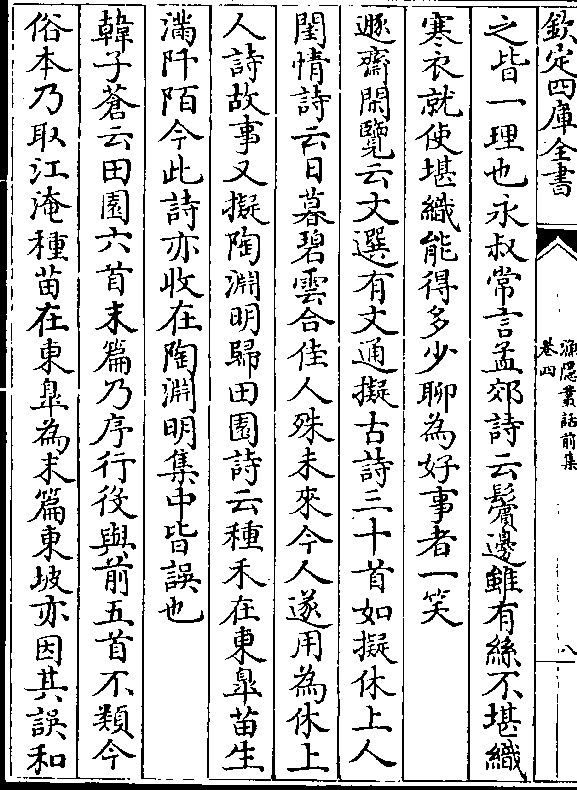 欽定四庫全書
漁隱叢話前集
卷四
八
之皆一理也永叔常言孟郊詩云鬢邊雖有絲不堪織
寒衣就使堪織能得多少聊為好事者一笑
遯齋閑覽云文選有文通擬古詩三十首如擬休上人
閨情詩云日暮碧雲合佳人殊未來今人遂用為休上
人詩故事又擬陶淵明歸田園詩云種禾在東臯苗生
滿阡陌今此詩亦收在陶淵明集中皆誤也
韓子蒼云田園六首末篇乃序行役與前五首不類今
俗本乃取江淹種苗在東臯為末篇東坡亦因其誤和